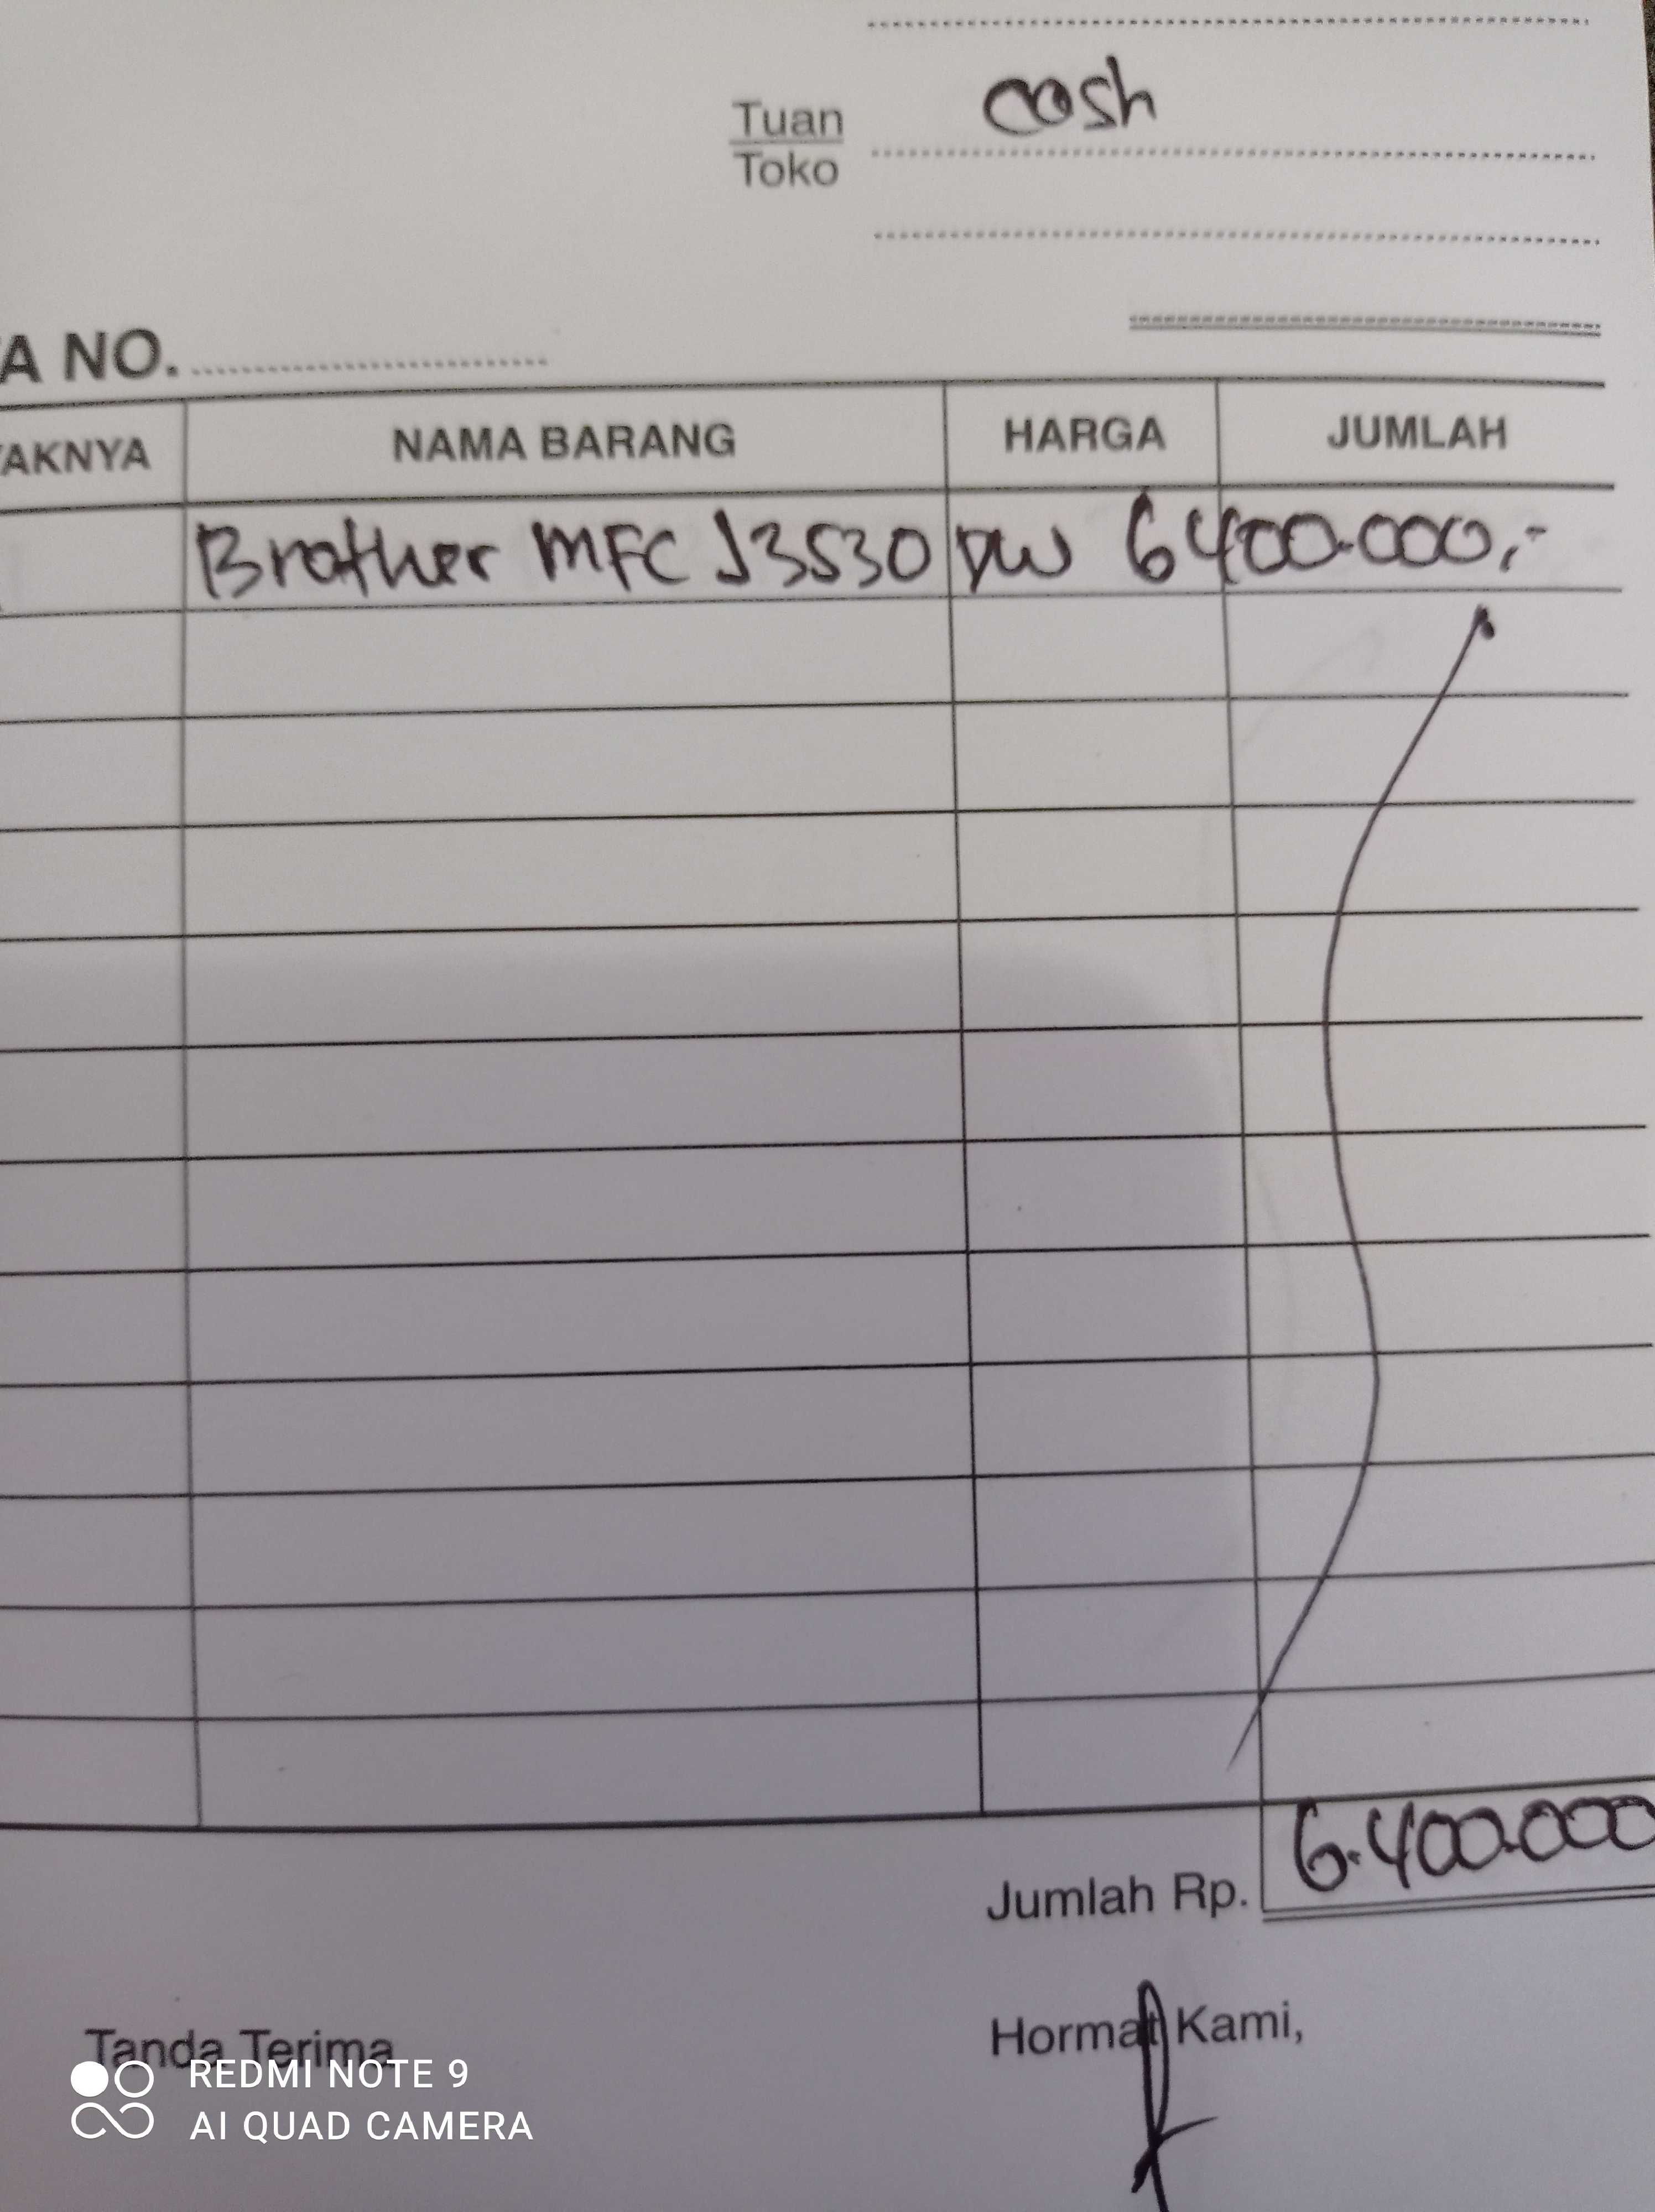 Tuan
Toko
cash
A NO.
AKNYA NAMA BARANG HARGA JUMLAH
Brother MFC J3530 DW 6400.000,-
Jumlah Rp. 6.400.000
Tanda Terima Hormat Kami,
REDMI NOTE 9
AI QUAD CAMERA